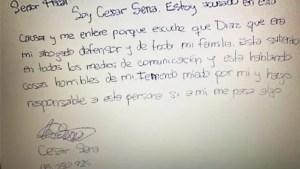 Señor Fiscal
Soy Cesar Sena. Estoy acusado en esta
causa y me entere porque escuche que Diaz que era
mi abogado defensor y de toda mi familia. Esta saliendo
en todos los medios de comunicación y esta hablando
cosas horribles de mi. Temendo miedo por mi y hago
responsable a esta persona si a mi me pasa algo
Cesar Sena